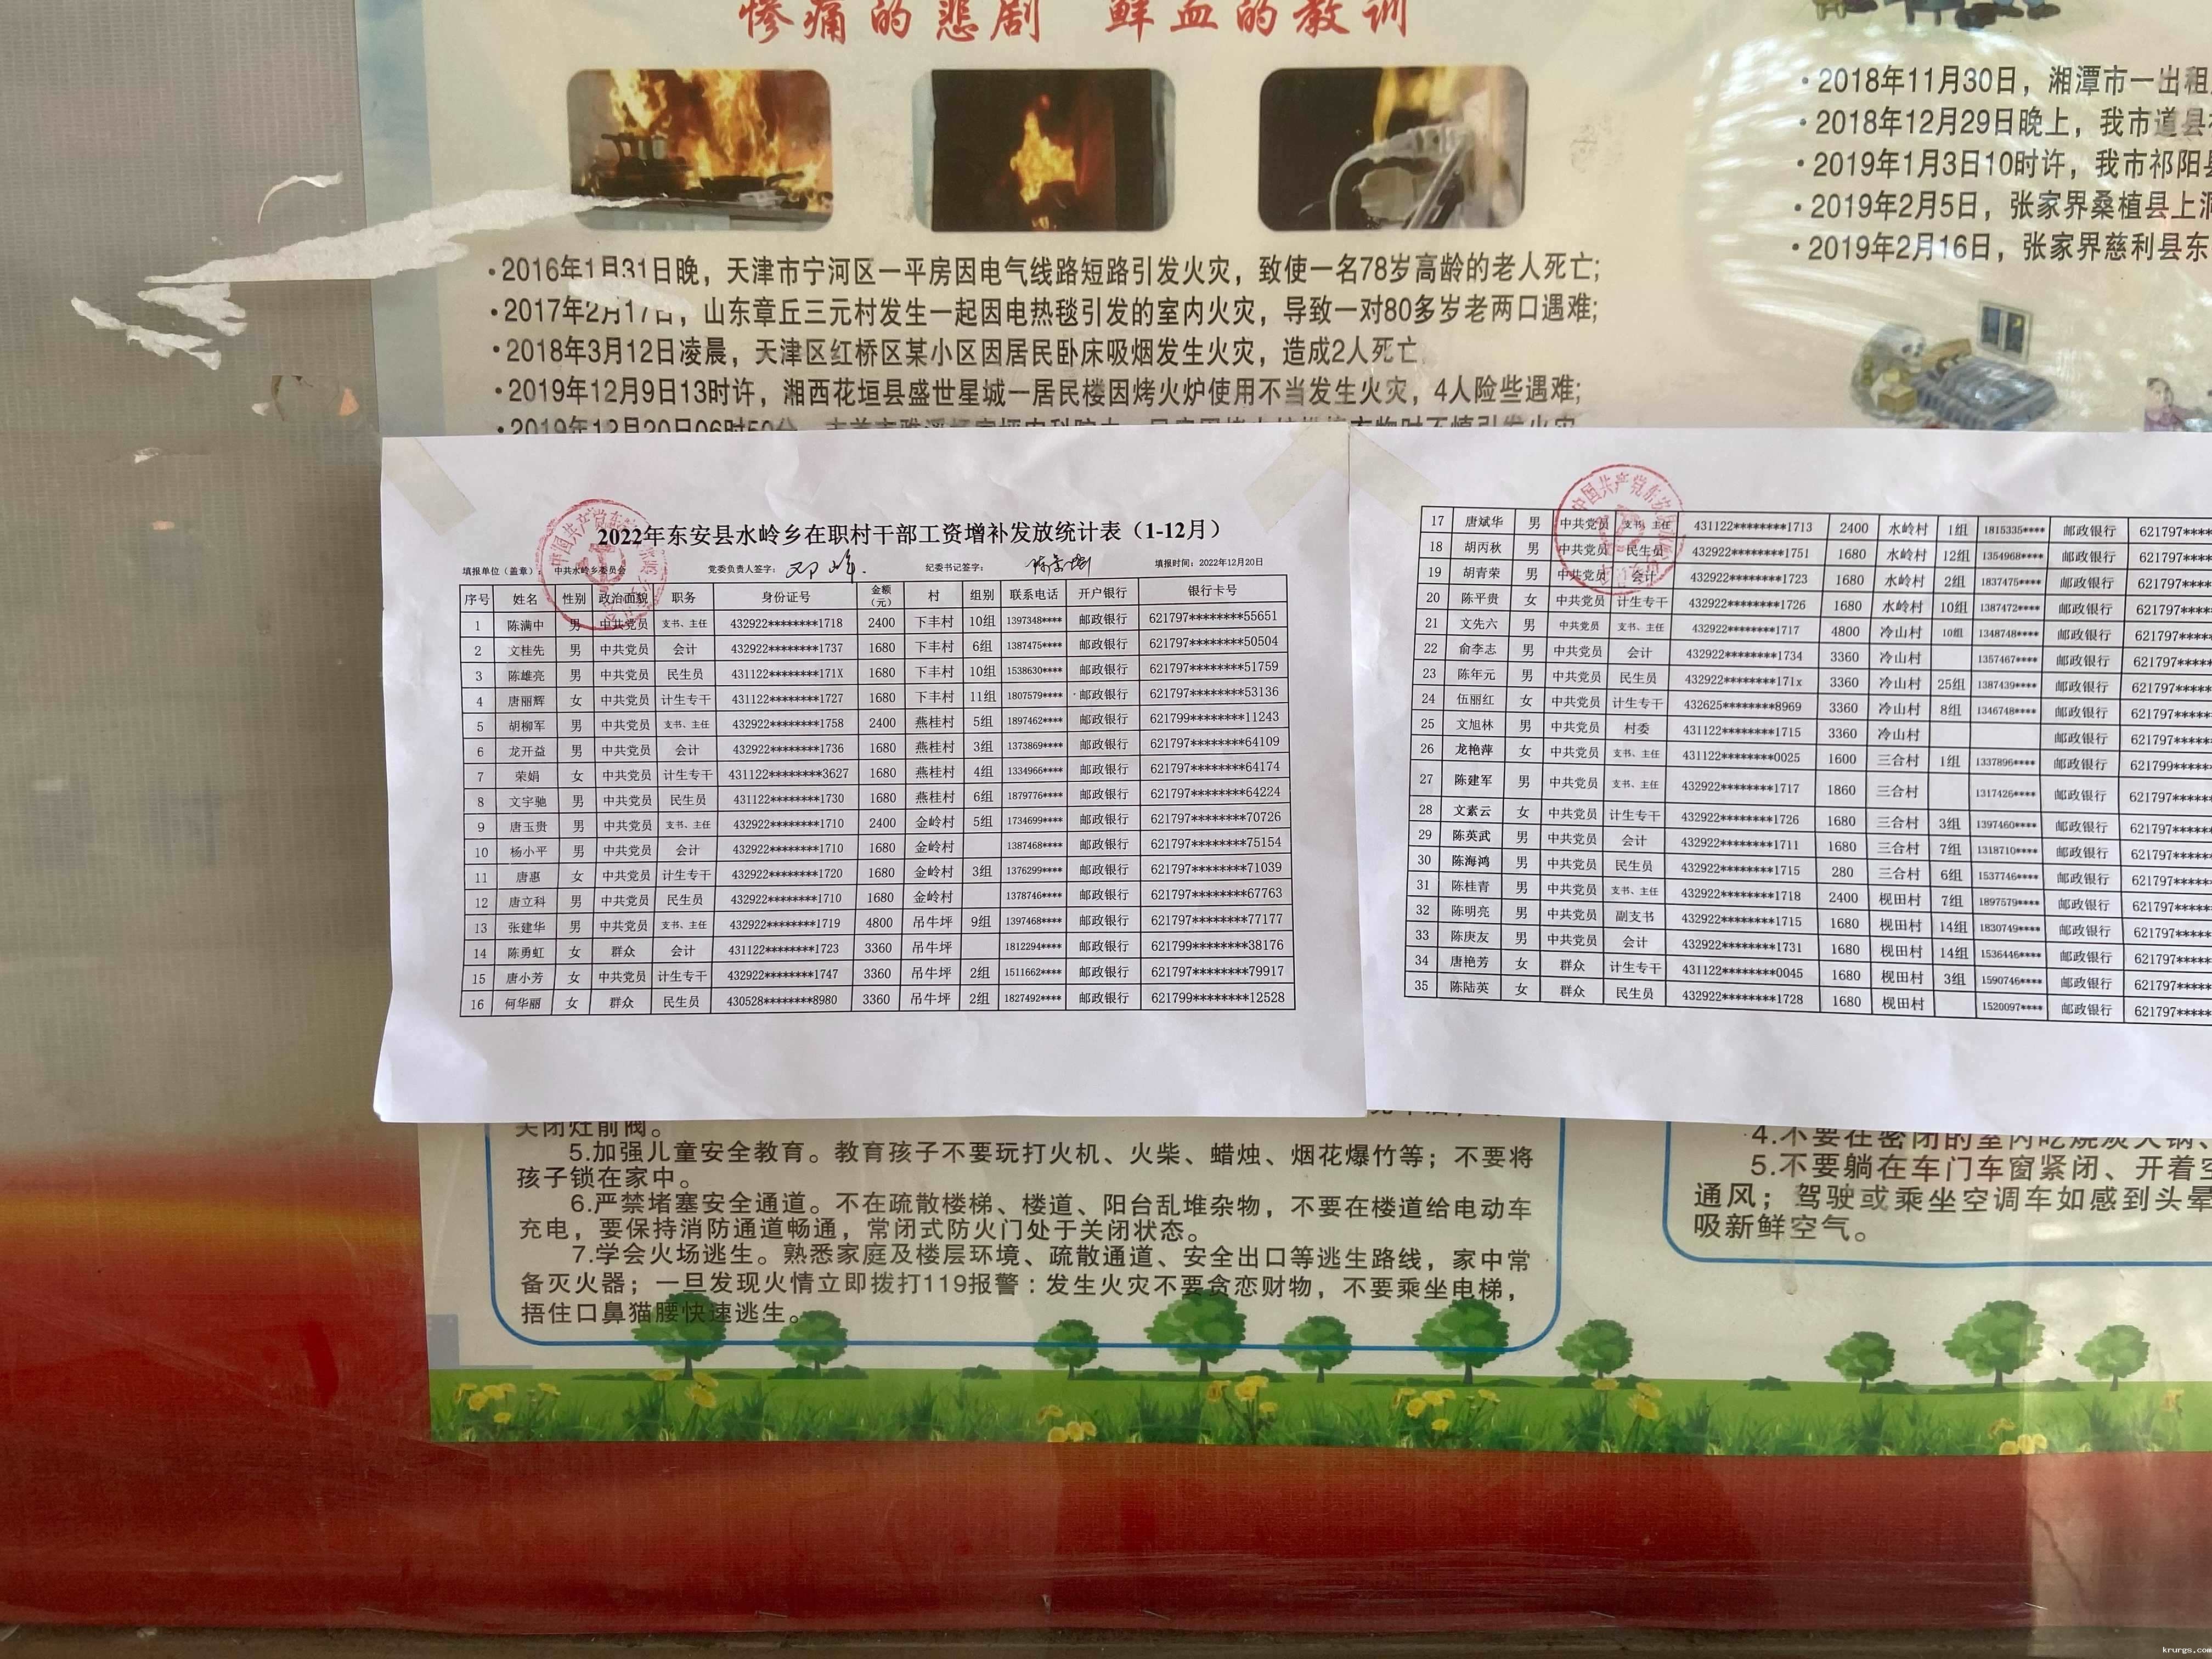 惨痛的悲剧 鲜血的教训
•2016年1月31日晚，天津市宁河区一平房因电气线路短路引发火灾，致使一名78岁高龄的老人死亡;
•2017年2月17日，山东章丘三元村发生一起因电热毯引发的室内火灾，导致一对80多岁老两口遇难;
•2018年3月12日凌晨，天津区红桥区某小区因居民卧床吸烟发生火灾，造成2人死亡
•2019年12月9日13时许，湘西花垣县盛世星城一居民楼因烤火炉使用不当发生火灾，4人险些遇难;
•2019年12月20日06时50分
•2018年11月30日，湘潭市一出租
•2018年12月29日晚上，我市道县
•2019年1月3日10时许，我市祁阳县
•2019年2月5日，张家界桑植县上洞
•2019年2月16日，张家界慈利县东
2022年东安县水岭乡在职村干部工资增补发放统计表（1-12月）
填报单位（盖章）： 中共水岭乡委员会 党委负责人签字： 纪委书记签字： 填报时间：2022年12月20日
序号 姓名 性别 政治面貌 职务 身份证号 金额（元） 村 组别 联系电话 开户银行 银行卡号
1 陈满中 男 中共党员 支书、主任 432922********1718 2400 下丰村 10组 1397348**** 邮政银行 621797********55651
2 文桂先 男 中共党员 会计 432922********1737 1680 下丰村 6组 1387475**** 邮政银行 621797********50504
3 陈雄亮 男 中共党员 民生员 431122********171X 1680 下丰村 10组 1538630**** 邮政银行 621797********51759
4 唐丽辉 女 中共党员 计生专干 431122********1727 1680 下丰村 11组 1807579**** 邮政银行 621797********53136
5 胡柳军 男 中共党员 支书、主任 432922********1758 2400 燕桂村 5组 1897462**** 邮政银行 621799********11243
6 龙开益 男 中共党员 会计 432922********1736 1680 燕桂村 3组 1373869**** 邮政银行 621797********64109
7 荣娟 女 中共党员 计生专干 431122********3627 1680 燕桂村 4组 1334966**** 邮政银行 621797********64174
8 文宇驰 男 中共党员 民生员 431122********1730 1680 燕桂村 6组 1879776**** 邮政银行 621797********64224
9 唐玉贵 男 中共党员 支书、主任 432922********1710 2400 金岭村 5组 1734699**** 邮政银行 621797********70726
10 杨小平 男 中共党员 会计 432922********1710 1680 金岭村 1387468**** 邮政银行 621797********75154
11 唐惠 女 中共党员 计生专干 432922********1720 1680 金岭村 3组 1376299**** 邮政银行 621797********71039
12 唐立科 男 中共党员 民生员 432922********1710 1680 金岭村 1378746**** 邮政银行 621797********67763
13 张建华 男 中共党员 支书、主任 432922********1719 4800 吊牛坪 9组 1397468**** 邮政银行 621797********77177
14 陈勇虹 女 群众 会计 431122********1723 3360 吊牛坪 1812294**** 邮政银行 621799********38176
15 唐小芳 女 中共党员 计生专干 432922********1747 3360 吊牛坪 2组 1511662**** 邮政银行 621797********79917
16 何华丽 女 群众 民生员 430528********8980 3360 吊牛坪 2组 1827492**** 邮政银行 621799********12528
17 唐斌华 男 中共党员 支书、主任 431122********1713 2400 水岭村 1组 1815335**** 邮政银行 621797*****
18 胡丙秋 男 中共党员 民生员 432922********1751 1680 水岭村 12组 1354968**** 邮政银行 621797*****
19 胡青荣 男 中共党员 会计 432922********1723 1680 水岭村 2组 1837475**** 邮政银行 621797*****
20 陈平贵 女 中共党员 计生专干 432922********1726 1680 水岭村 10组 1387472**** 邮政银行 621797*****
21 文先六 男 中共党员 支书、主任 432922********1717 4800 冷山村 10组 1348748**** 邮政银行 621797*****
22 俞李志 男 中共党员 会计 432922********1734 3360 冷山村 1357467**** 邮政银行 621797*****
23 陈年元 男 中共党员 民生员 431122********171x 3360 冷山村 25组 1387439**** 邮政银行 621797*****
24 伍丽红 女 中共党员 计生专干 432625********8969 3360 冷山村 8组 1346748**** 邮政银行 621797*****
25 文旭林 男 中共党员 村委 431122********1715 3360 冷山村 邮政银行 621797*****
26 龙艳萍 女 中共党员 支书、主任 431122********0025 1600 三合村 1组 1337896**** 邮政银行 621799*****
27 陈建军 男 中共党员 支书、主任 432922********1717 1860 三合村 1317426**** 邮政银行 621797*****
28 文素云 女 中共党员 计生专干 432922********1726 1680 三合村 3组 1397460**** 邮政银行 621797*****
29 陈英武 男 中共党员 会计 432922********1711 1680 三合村 7组 1318710**** 邮政银行 621797*****
30 陈海鸿 男 中共党员 民生员 432922********1715 280 三合村 6组 1537746**** 邮政银行 621797*****
31 陈桂青 男 中共党员 支书、主任 432922********1718 2400 枧田村 7组 1897579**** 邮政银行 621797*****
32 陈明亮 男 中共党员 副支书 432922********1715 1680 枧田村 14组 1830749**** 邮政银行 621797*****
33 陈庚友 男 中共党员 会计 432922********1731 1680 枧田村 14组 1536446**** 邮政银行 621797*****
34 唐艳芳 女 群众 计生专干 431122********0045 1680 枧田村 3组 1590746**** 邮政银行 621797*****
35 陈陆英 女 群众 民生员 432922********1728 1680 枧田村 1520097**** 邮政银行 621797*****
关闭灶前阀。
5.加强儿童安全教育。教育孩子不要玩打火机、火柴、蜡烛、烟花爆竹等；不要将
孩子锁在家中。
6.严禁堵塞安全通道。不在疏散楼梯、楼道、阳台乱堆杂物，不要在楼道给电动车
充电，要保持消防通道畅通，常闭式防火门处于关闭状态。
7.学会火场逃生。熟悉家庭及楼层环境、疏散通道、安全出口等逃生路线，家中常
备灭火器；一旦发现火情立即拨打119报警：发生火灾不要贪恋财物，不要乘坐电梯，
捂住口鼻猫腰快速逃生。
4.不要在密闭的室内吃烧炭火锅、
5.不要躺在车门车窗紧闭、开着空
通风；驾驶或乘坐空调车如感到头晕
吸新鲜空气。
krurgs.com